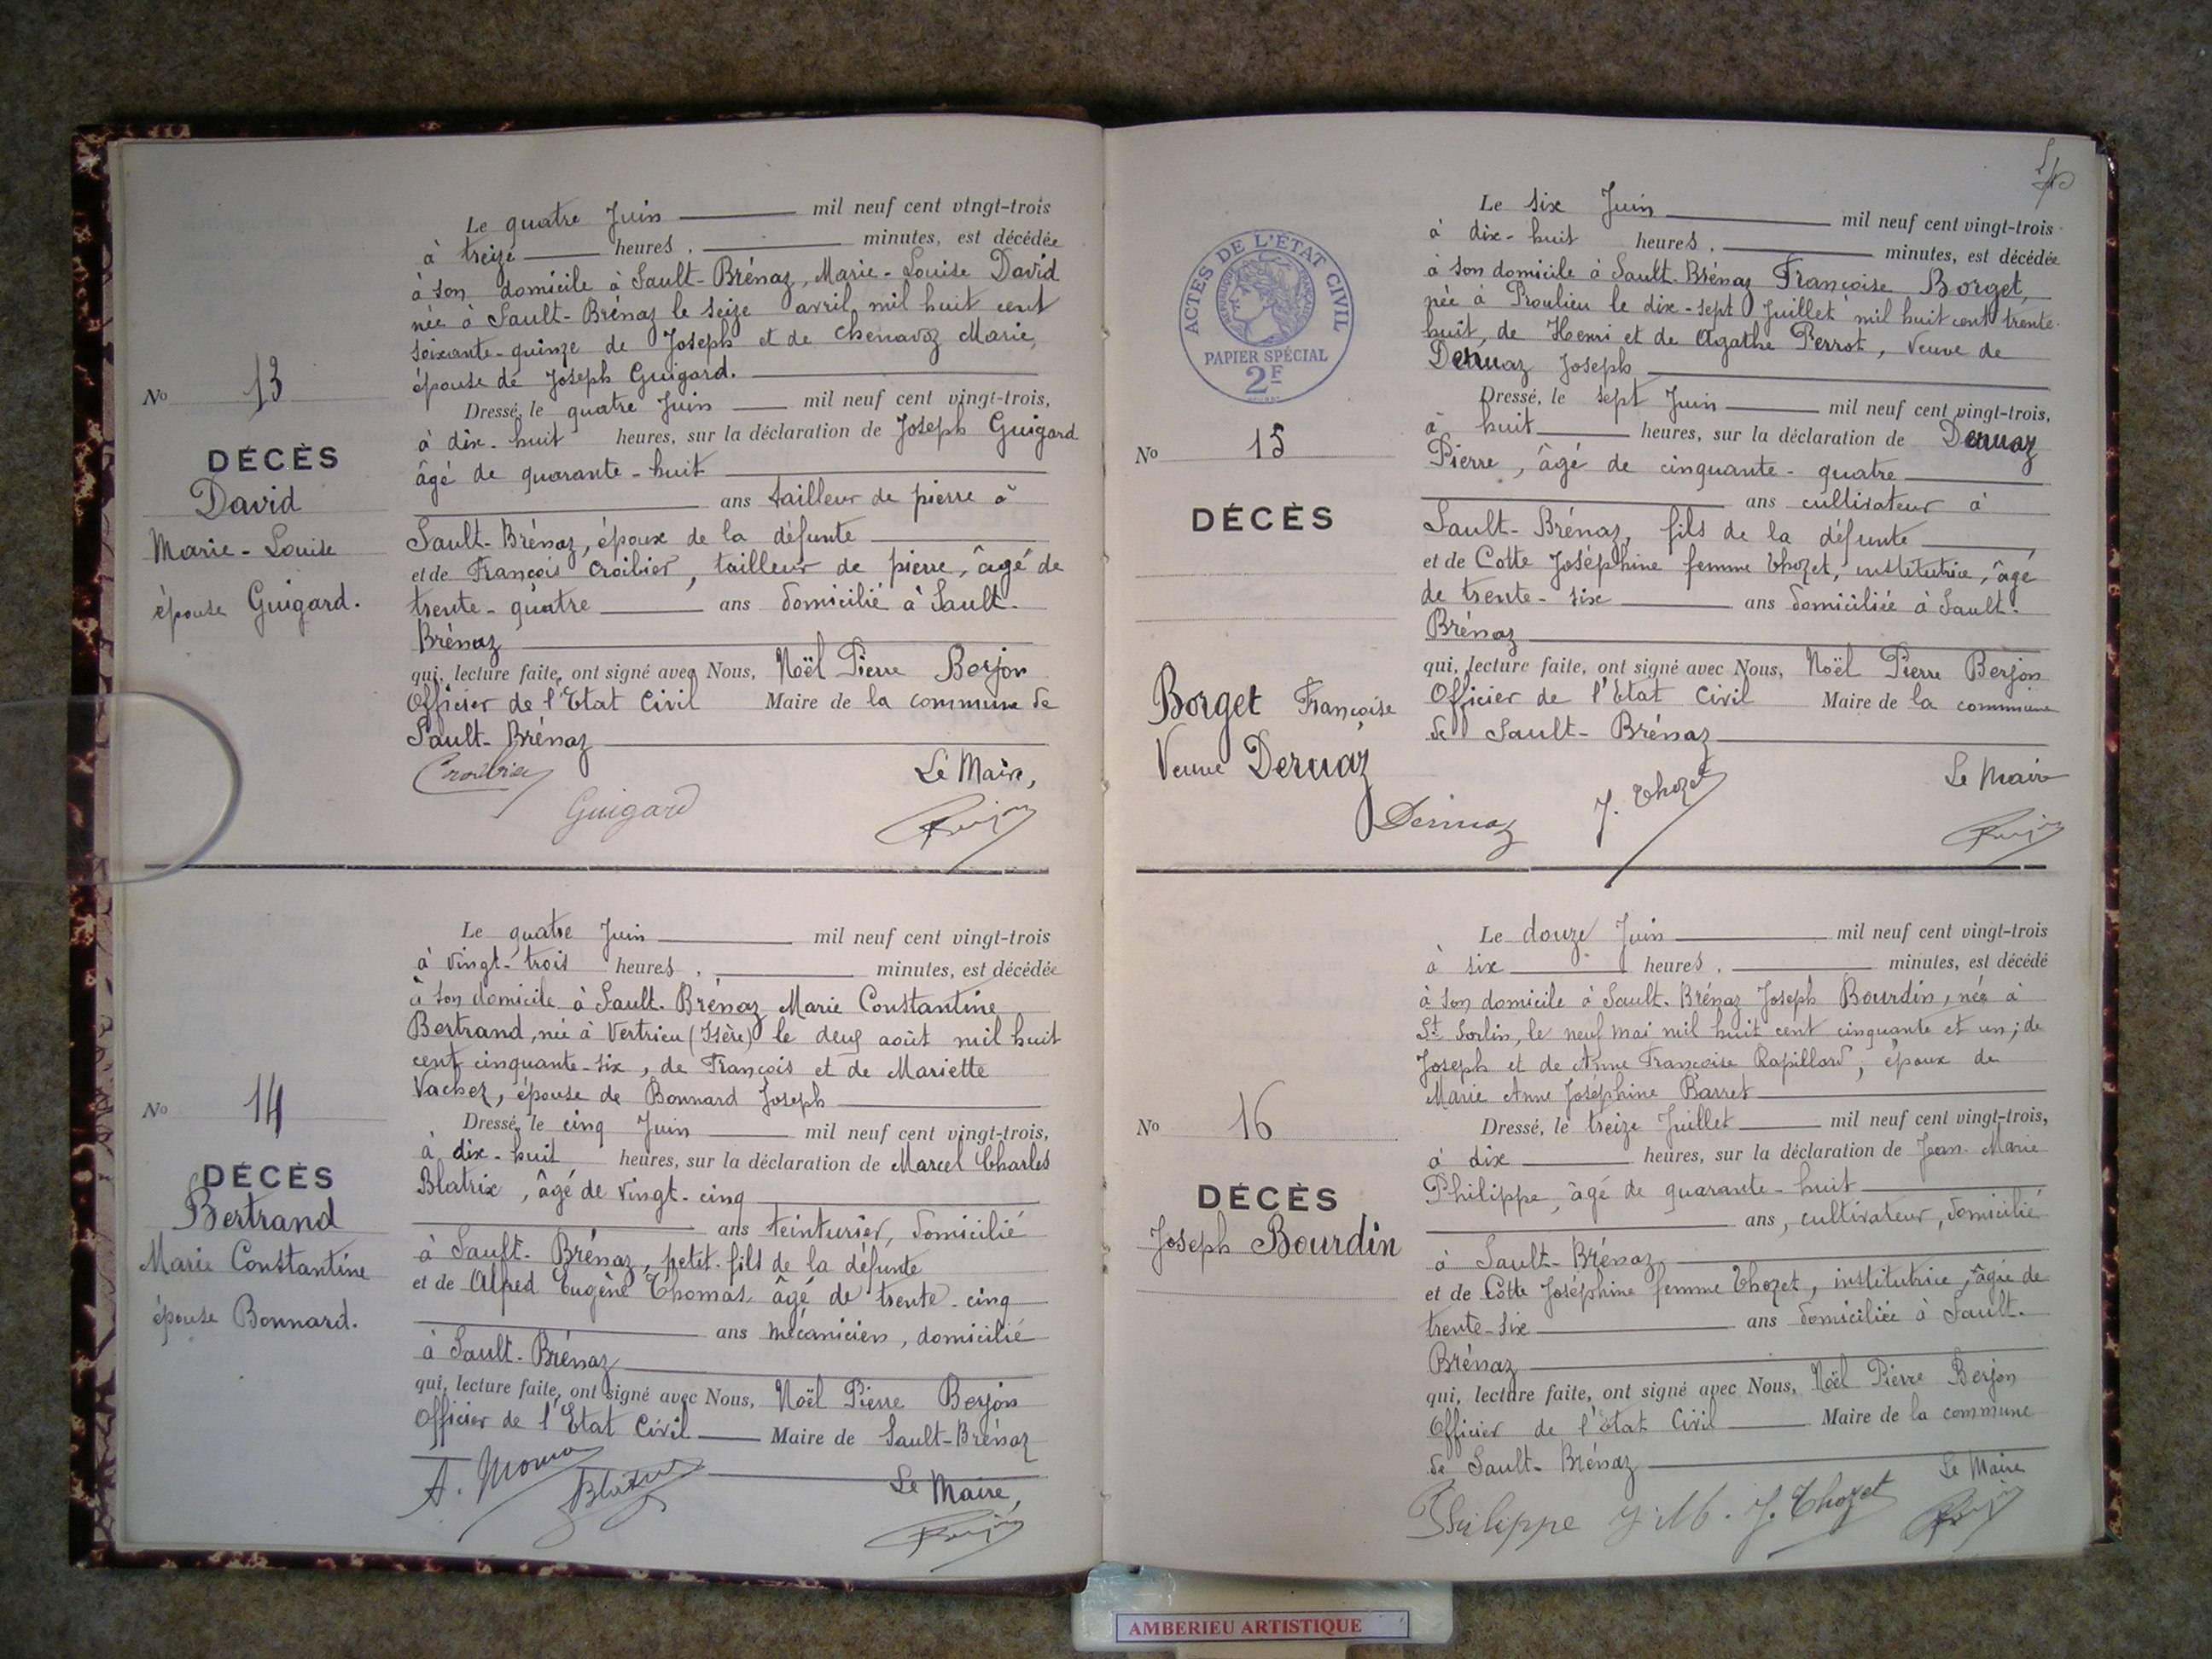 Le quatre Juin mil neuf cent vingt-trois
à treize heures, minutes, est décédée
à son domicile à Sault-Brénaz, Marie-Louise David
née à Sault-Brénaz le seize avril mil huit cent
soixante-quinze de Joseph et de Chenavaz Marie,
épouse de Joseph Guigard.
No 13
Dressé, le quatre Juin mil neuf cent vingt-trois,
à dix-huit heures, sur la déclaration de Joseph Guigard
DÉCÈS
David
Marie-Louise
épouse Guigard.
âgé de quarante-huit
ans tailleur de pierre à
Sault-Brénaz, époux de la défunte
et de François Croibier, tailleur de pierre, âgé de
trente-quatre ans domicilié à Sault-
Brénaz
qui, lecture faite, ont signé avec Nous, Noël Pierre Berjon
Officier de l'Etat Civil Maire de la commune de
Sault-Brénaz
Croibier
Guigard
Le Maire,
Le quatre Juin mil neuf cent vingt-trois
à vingt-trois heures, minutes, est décédée
à son domicile à Sault-Brénaz Marie Constantine
Bertrand, née à Vertrieu (Isère) le deux août mil huit
cent cinquante-six, de François et de Mariette
Vacher, épouse de Bonnard Joseph
No 14
Dressé, le cinq Juin mil neuf cent vingt-trois,
à dix-huit heures, sur la déclaration de Marcel Charles
DÉCÈS
Bertrand
Marie Constantine
épouse Bonnard.
Blatrix, âgé de vingt-cinq
ans teinturier, domicilié
à Sault-Brénaz, petit-fils de la défunte
et de Alfred Eugène Thomas âgé de trente-cinq
ans mécanicien, domicilié
à Sault-Brénaz
qui, lecture faite, ont signé avec Nous, Noël Pierre Berjon
Officier de l'Etat Civil Maire de Sault-Brénaz
Blatrix
Le Maire,
Le six Juin mil neuf cent vingt-trois
à dix-huit heures, minutes, est décédée
à son domicile à Sault-Brénaz Françoise Borget,
née à Proulieu le dix-sept Juillet mil huit cent trente-
huit, de Henri et de Agathe Perrot, veuve de
Deruaz Joseph
ACTES DE L'ÉTAT CIVIL
PAPIER SPÉCIAL
2F
No 15
DÉCÈS
Borget Françoise
Veuve Deruaz
Dressé, le sept Juin mil neuf cent vingt-trois,
à huit heures, sur la déclaration de Deruaz
Pierre, âgé de cinquante-quatre
ans cultivateur à
Sault-Brénaz, fils de la défunte
et de Cotte Joséphine femme Thozet, institutrice, âgé
de trente-six ans domiciliée à Sault-
Brénaz
qui, lecture faite, ont signé avec Nous, Noël Pierre Berjon
Officier de l'Etat Civil Maire de la commune
de Sault-Brénaz
Deruaz
J. Thozet
Le Maire
Le douze Juin mil neuf cent vingt-trois
à six heures, minutes, est décédé
à son domicile à Sault-Brénaz Joseph Bourdin, née à
St Sorlin, le neuf mai mil huit cent cinquante et un, de
Joseph et de Anne Françoise Rapillard, époux de
Marie Anne Joséphine Barret
No 16
DÉCÈS
Joseph Bourdin
Dressé, le treize Juillet mil neuf cent vingt-trois,
à dix heures, sur la déclaration de Jean-Marie
Philippe, âgé de quarante-huit
ans, cultivateur, domicilié
à Sault-Brénaz
et de Cotte Joséphine femme Thozet, institutrice, âgée de
trente-six ans domiciliée à Sault-
Brénaz
qui, lecture faite, ont signé avec Nous, Noël Pierre Berjon
Officier de l'état Civil Maire de la commune
de Sault-Brénaz
Philippe J. M. J. Thozet
Le Maire
AMBERIEU ARTISTIQUE